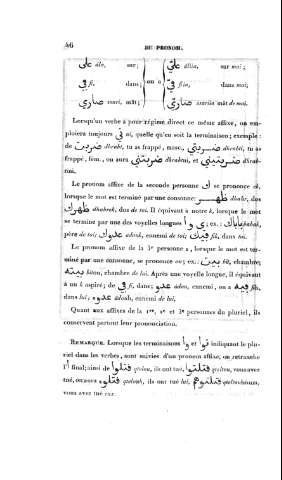 46 DU PRONOM.
على ala, sur; } on a { عليّ aliia, sur moi;
في fi, dans; فيّ fiia, dans moi;
صاري sari, mât; صاريّ sariia mât de moi.
Lorsqu'un verbe a pour régime direct ce même affixe, on em-
ploiera toujours ني ni, quelle qu'en soit la terminaison; exemple:
de ضربت drabt, tu as frappé, masc., ضربتني drabtni, et tu as
frappé, fém., on aura ضربتيني
Le pronom affixe de la seconde personne ك se prononce ek,
lorsque le mot est terminé par une consonne: ظهر dhahr, dos
ظهرك dhahrek, dos de toi. Il équivaut à notre k, lorsque le mot
se termine par une des voyelles longues ا و ي; ex.: باباك babak,
père de toi; عدوك adouk, ennemi de toi; فيك fik, dans toi.
Le pronom affixe de la 3e personne ه, lorsque le mot est ter-
miné par une consonne, se prononce ou; ex.: بيت bit, chambre;
بيته bitou, chambre de lui. Après une voyelle longue, il équivaut
à un h aspiré; de في fi, dans; عدو adou, ennemi, on a فيه fih,
dans lui; عدوه adouh, ennemi de lui.
Quant aux affixes de la 1re, 2e et 3e personnes du pluriel, ils
conservent partout leur prononciation.
REMARQUE. Lorsque les terminaisons وا et توا indiquant le plu-
riel dans les verbes, sont suivies d'un pronom affixe, on retranche
l'ا final; ainsi de قتلوا qtolou, ils ont tué, قتلتوا qteltou, vous avez
tué, on aura قتلوه qtolouh, ils ont tué lui, قتلتوهم qteltouhoum,
vous avez tué eux.